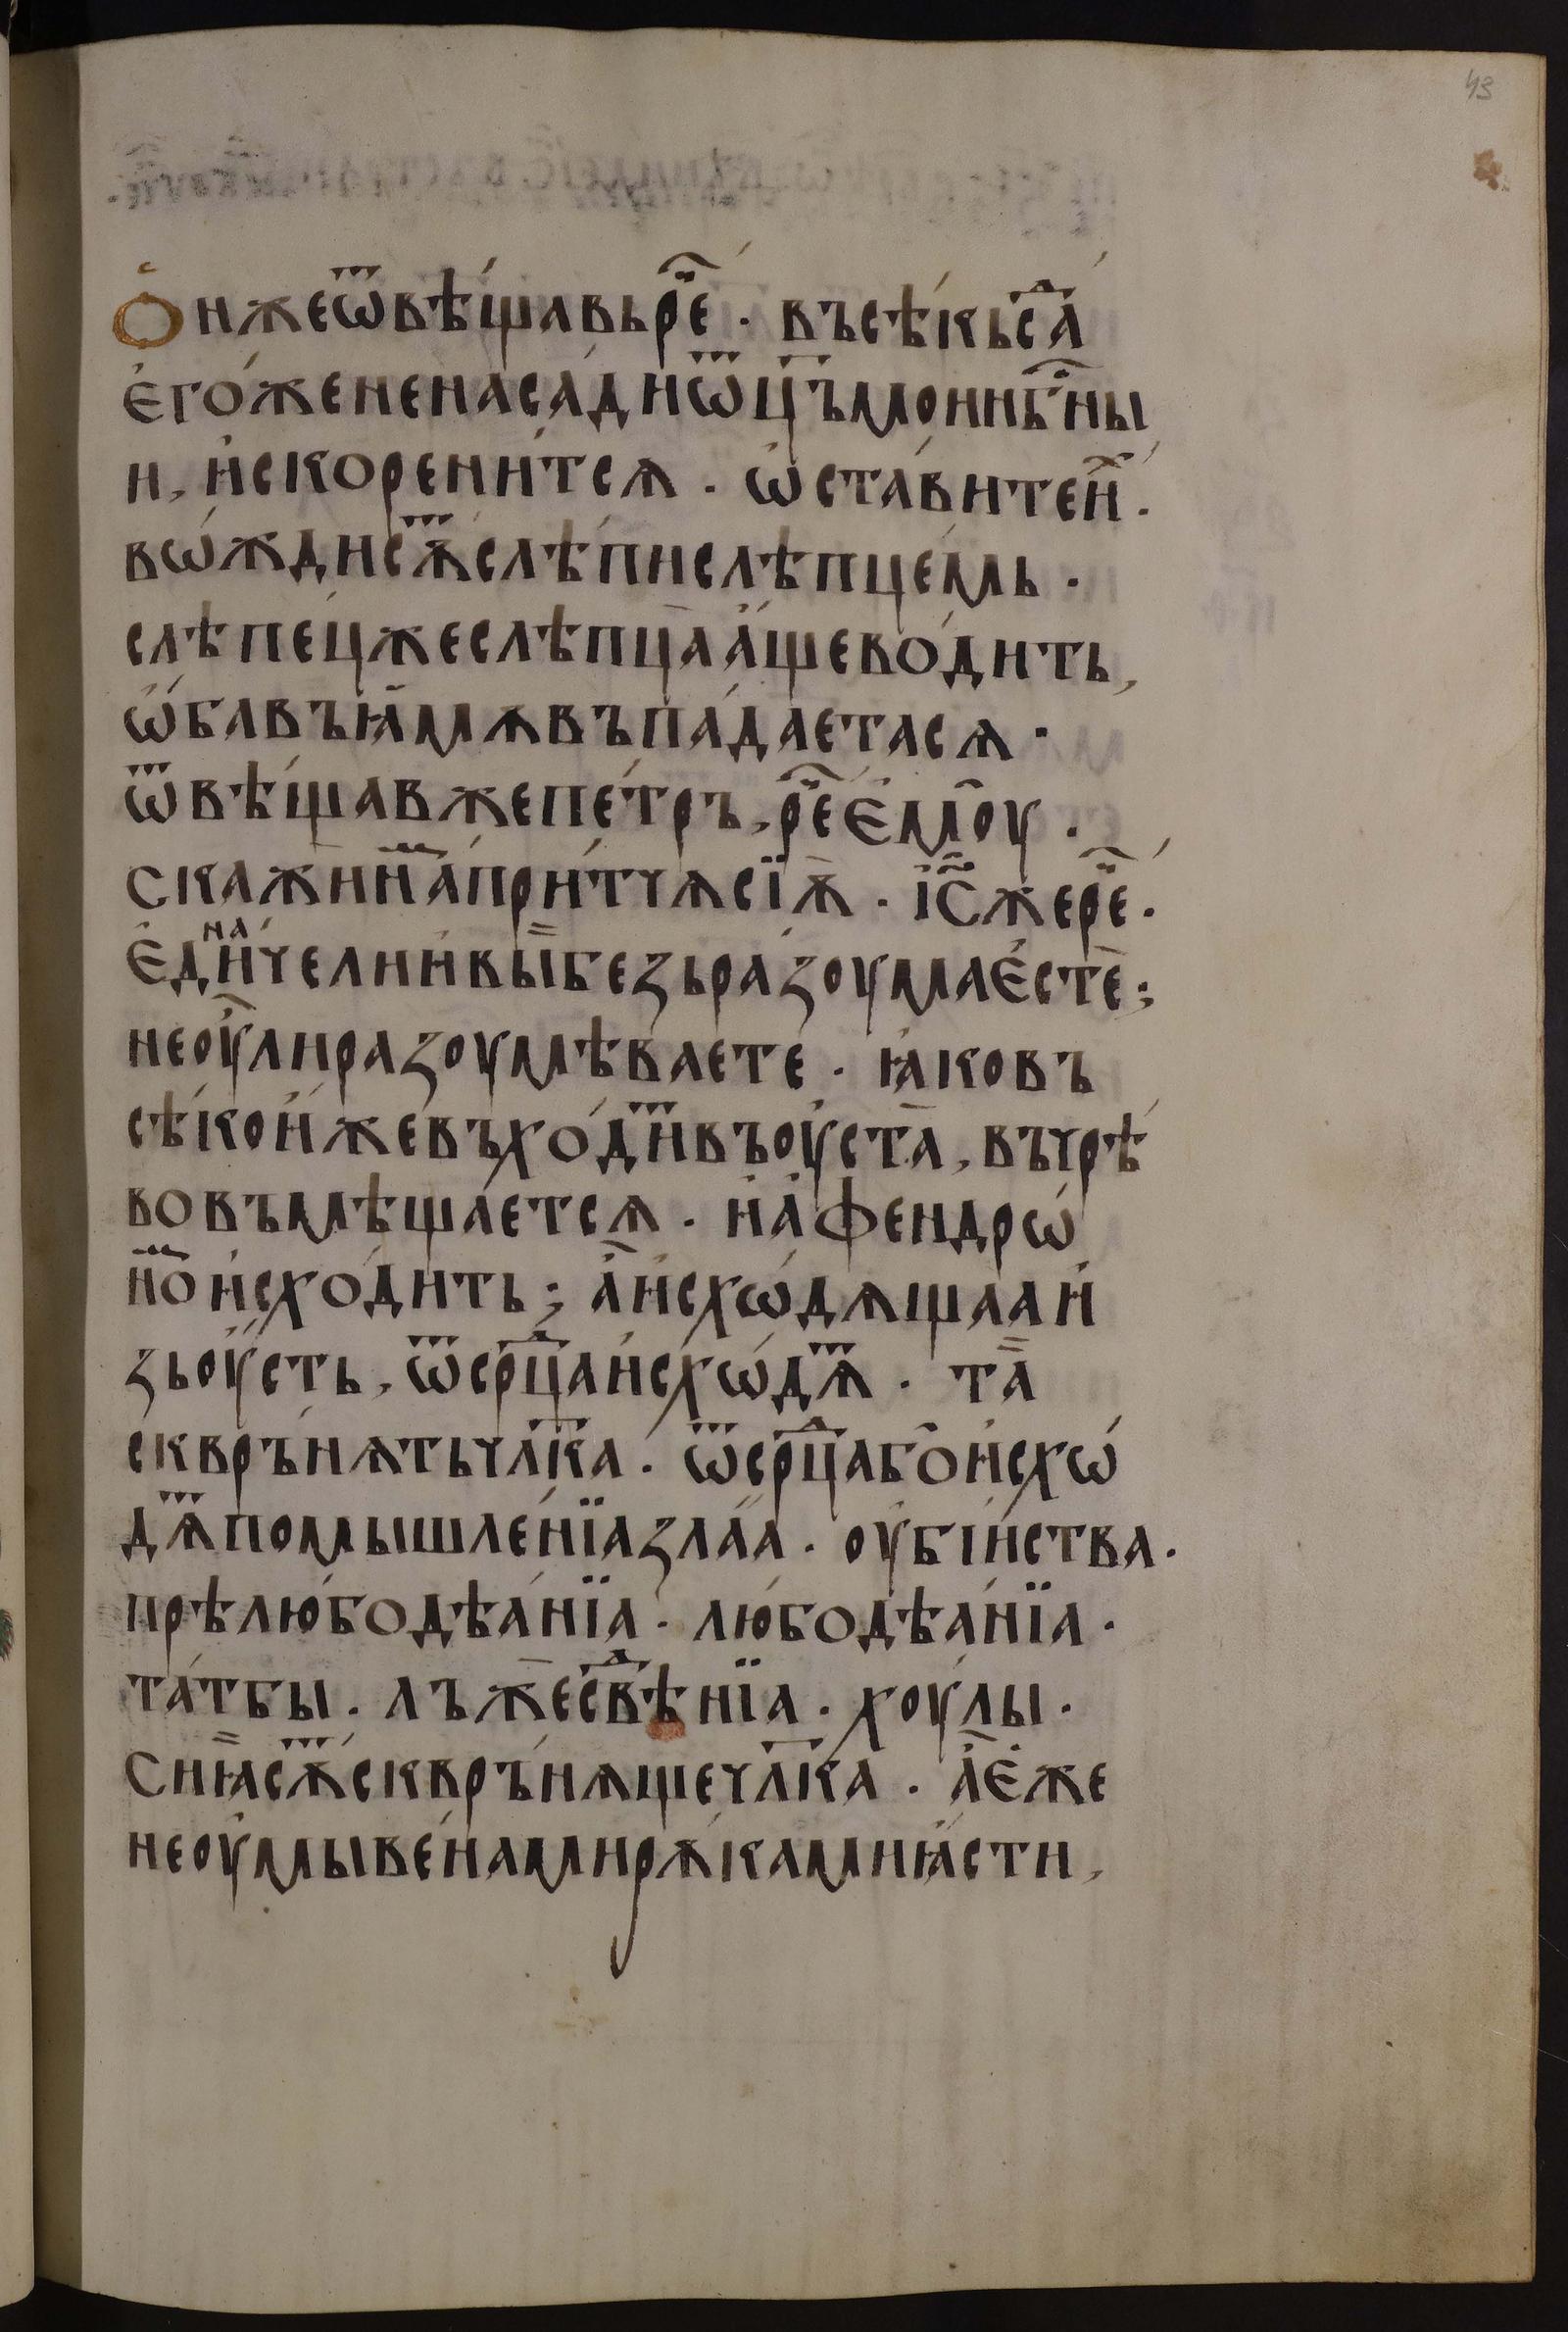 43
Ѻнжеѿвѣщавьрⷱ҇е · въсѣкьсⷣа
егожененасадиѿц҃ъмоинбⷭ҇ны
и, искоренитсѧ · ѡставитеиⷯ ·
вѡждисѫⷮслѣпислѣпцемь ·
слѣпецжеслѣпцаащеводить,
ѡбавъꙗмѫвъпадаетасѧ ·
ѿвѣщавжепетръ, рⷱ҇еемоу ·
скажинⷨапритчѫсїѫ · іс҃жерⷱ҇е ·
единаче ли и вы безь разоума есте ;
неоулиразоумѣваете · ꙗковъ
сѣкоижевъходиⷮвъоуста, въчрѣ
вовъмѣщаетсѧ · иафендрѡ
нⷨоисходить ; аисхѡдѧщааи
зьоусть, ѿсрⷣцаисхѡдѧⷮ · та
скврънѧтьчл҃ка · ѿсрⷣцабоисхѡ
дѧⷮпомышленїазлаа · оубіиства ·
прѣлюбодѣанїа · любодѣанїа ·
татбы · лъжесвⷣѣнїа · хоулы ·
сиꙗсѫⷮскврънѧщечл҃ка · аеже
неоумывенамирѫкамиꙗсти,